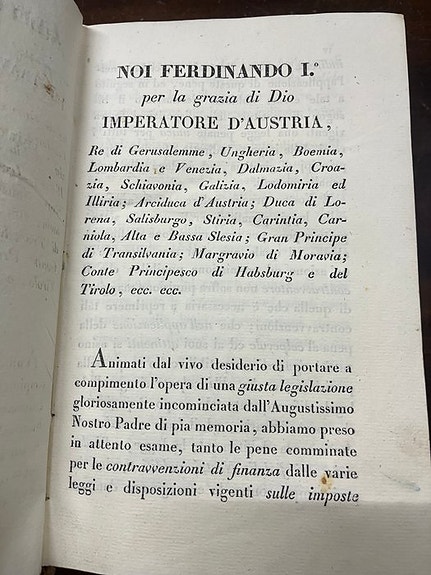 NOI FERDINANDO I.º
per la grazia di Dio
IMPERATORE D'AUSTRIA,
Re di Gerusalemme, Ungheria, Boemia,
Lombardia e Venezia, Dalmazia, Croa-
zia, Schiavonia, Galizia, Lodomiria ed
Illiria; Arciduca d'Austria; Duca di Lo-
rena, Salisburgo, Stiria, Carintia, Car-
niola, Alta e Bassa Slesia; Gran Principe
di Transilvania; Margravio di Moravia;
Conte Principesco di Habsburg e del
Tirolo, ecc. ecc.
Animati dal vivo desiderio di portare a
compimento l'opera di una giusta legislazione
gloriosamente incominciata dall'Augustissimo
Nostro Padre di pia memoria, abbiamo preso
in attento esame, tanto le pene comminate
per le contravvenzioni di finanza dalle varie
leggi e disposizioni vigenti sulle imposte